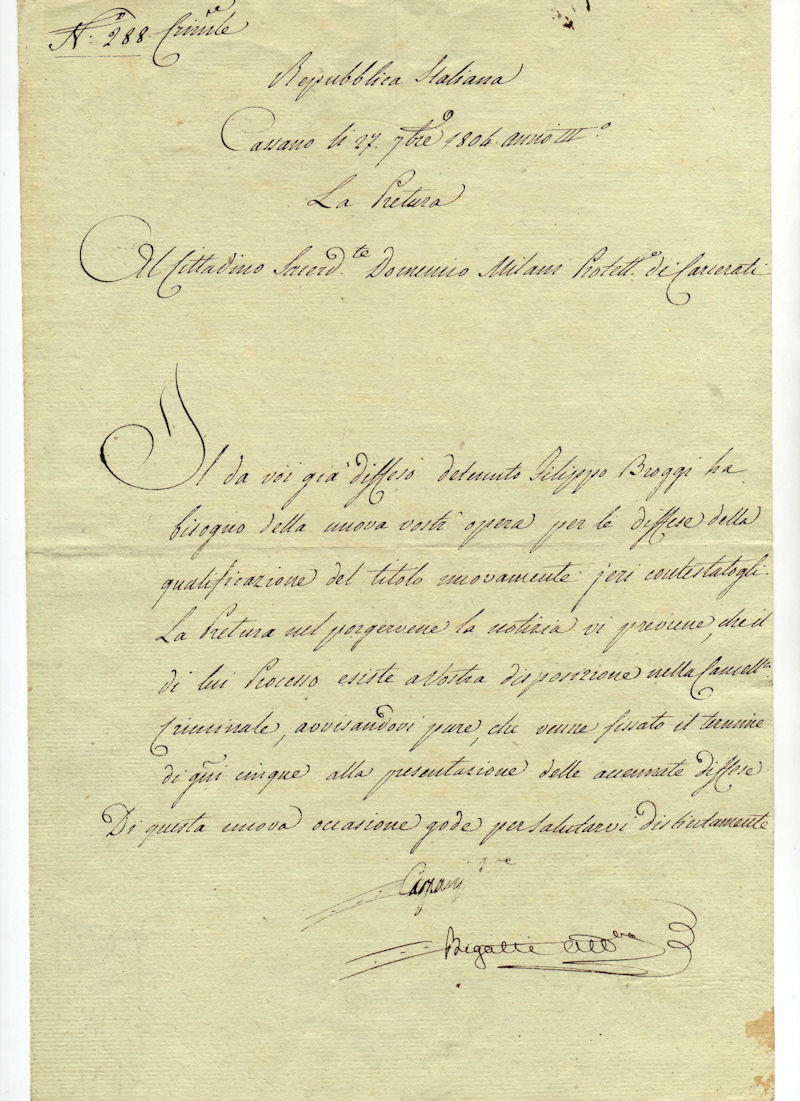 N.º 288. Crim.le
Repubblica Italiana
Cassano li 27. 7bre 1804. anno III.º
La Pretura
Al Cittadino Sacerd.te Domenico Milani Protett.e di Carcerati
Il da voi già diffeso detenuto Filippo Broggi ha
bisogno della nuova vostr' opera per le diffese della
qualificazione del titolo nuovamente jeri contestatogli.
La Pretura nel porgervene la notizia vi previene, che il
di lui Processo esiste a Vostra disposizione nella Cancell.ia
Criminale, avvisandovi pure, che venne fissato il termine
di g.ni cinque alla presentazione delle accennate diffese
Di questa nuova occasione gode per salutarvi distintamente